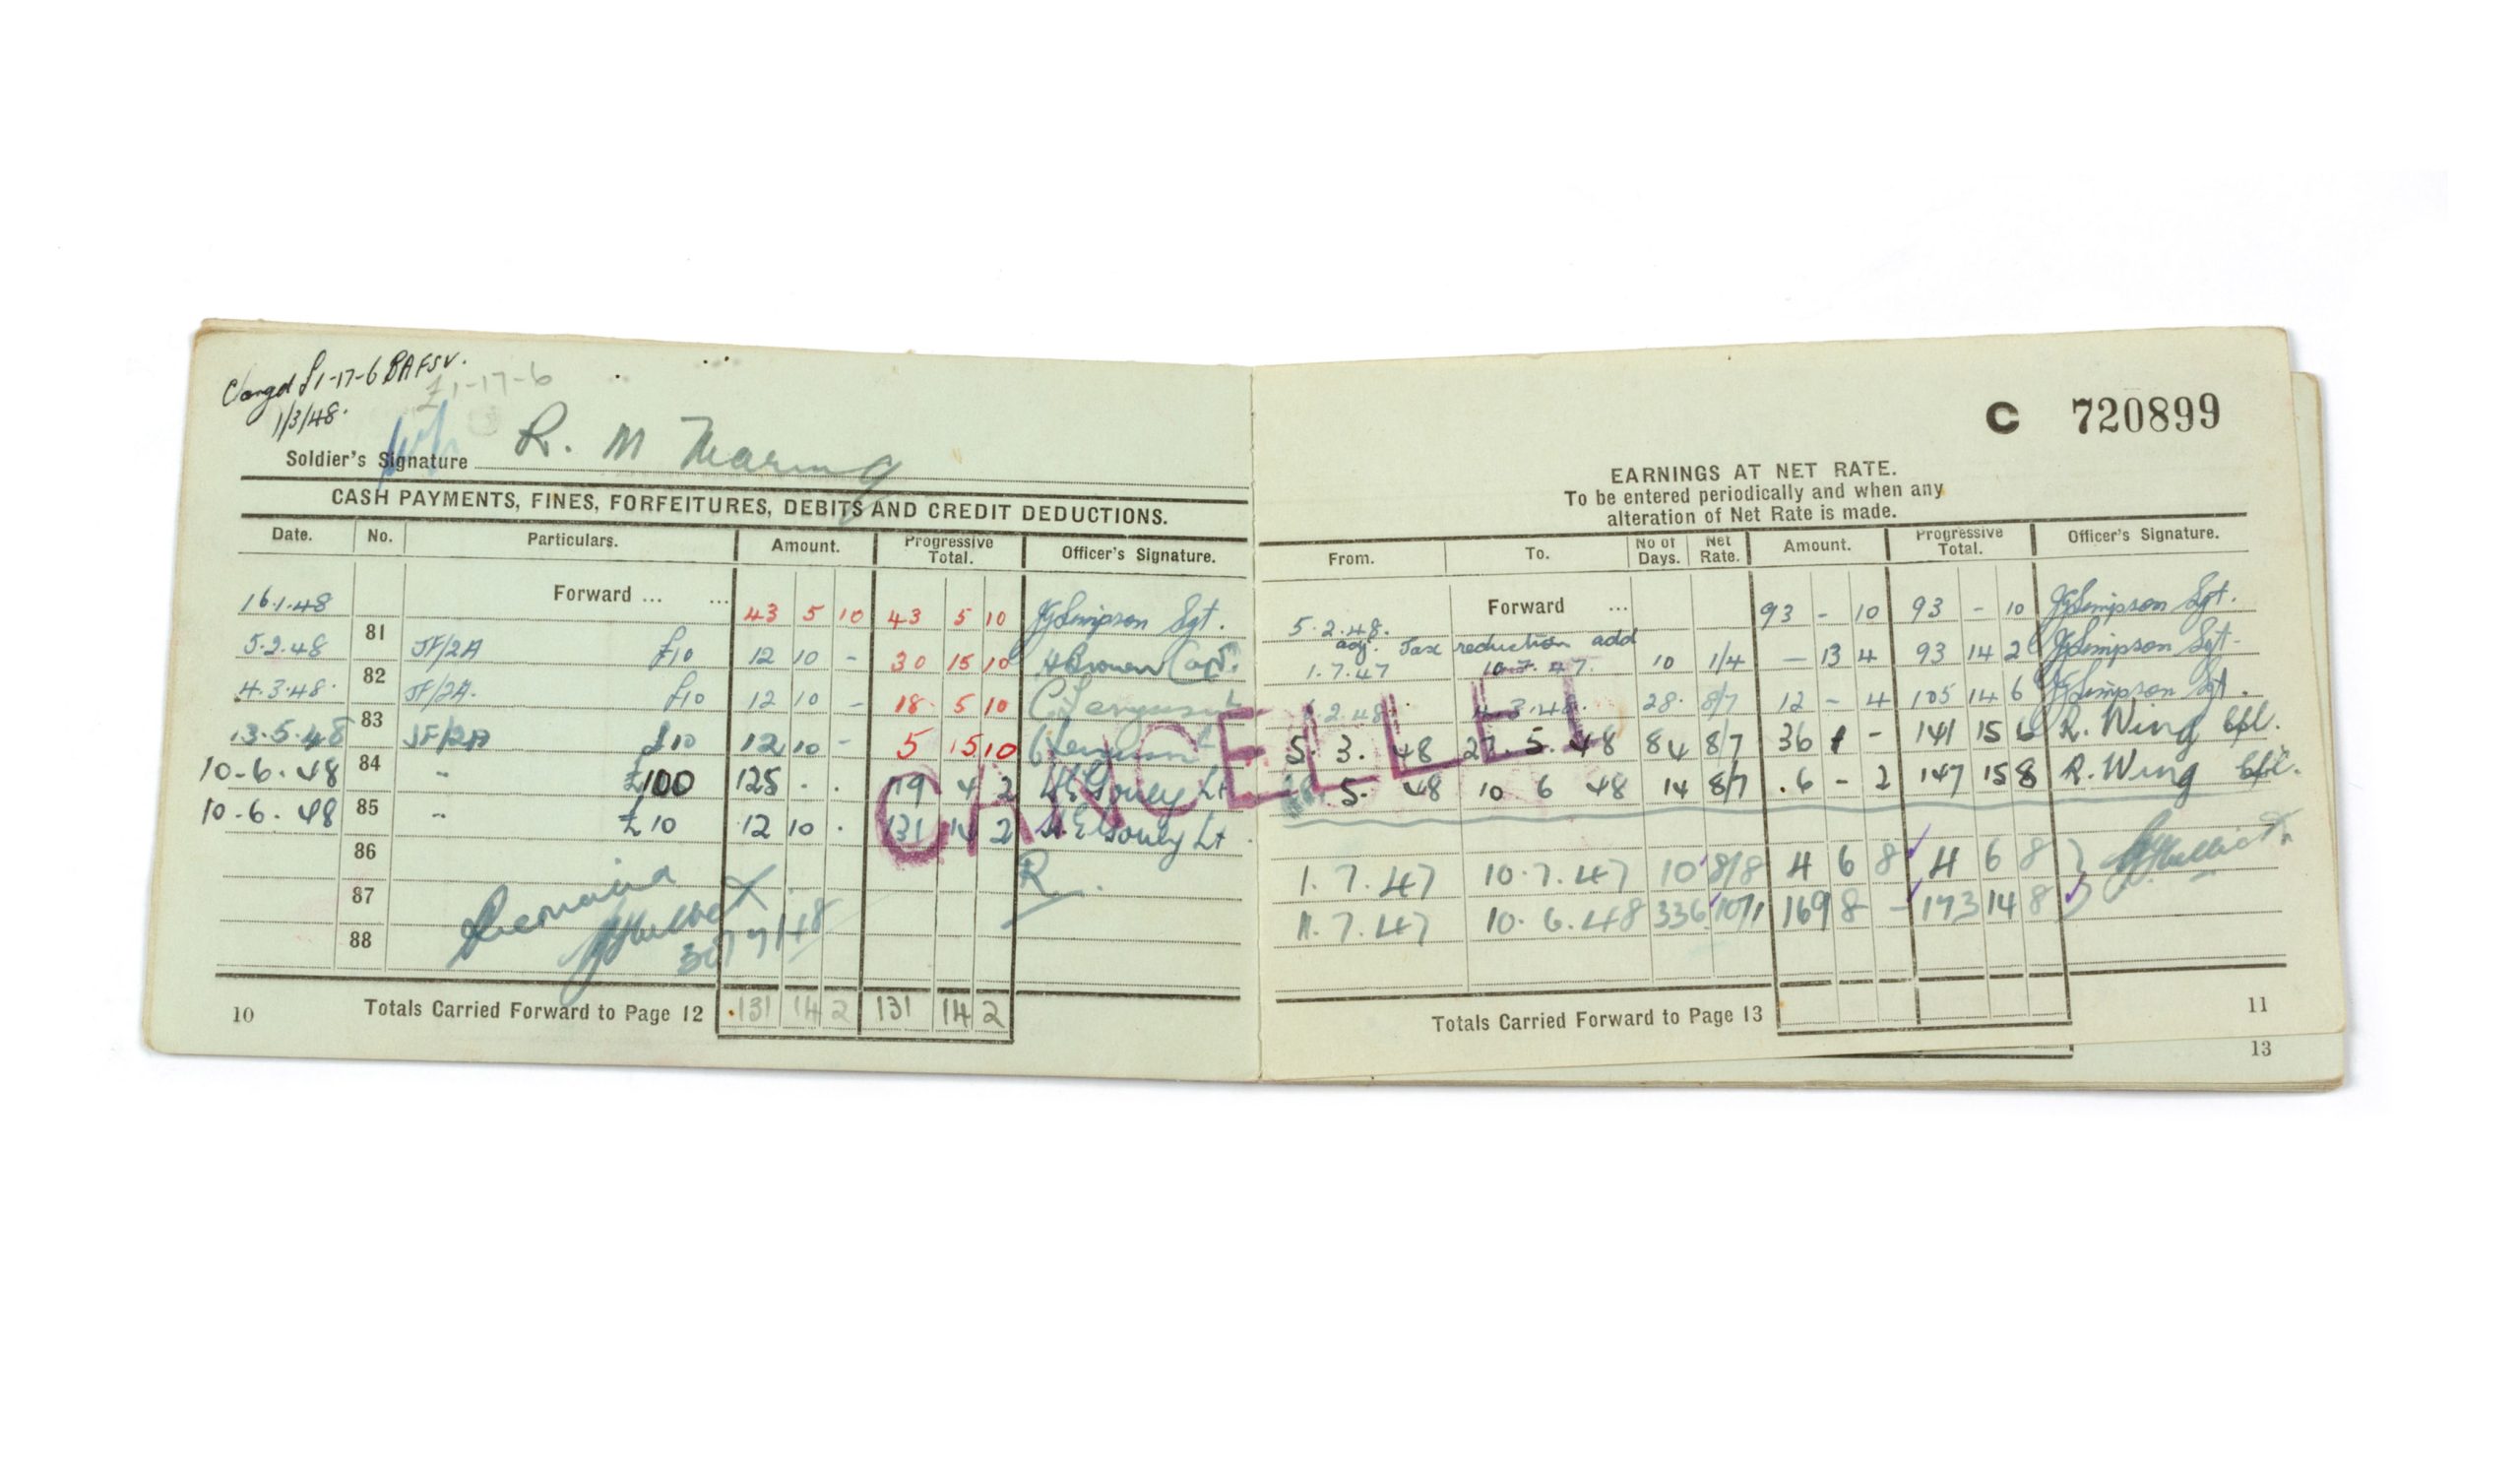 £1-17-6 BAFSV.
£1-17-6
1/3/48.
Soldier's Signature R. M
CASH PAYMENTS, FINES, FORFEITURES, DEBITS AND CREDIT DEDUCTIONS.
Date. No. Particulars. Amount. Progressive Total. Officer's Signature.
16.1.48 Forward ... ... 43 5 10 43 5 10 Simpson Sgt.
5.2.48 81 JF/2A £10 12 10 - 30 15 10 Capt.
4.3.48. 82 JF/2A. £10 12 10 - 18 5 10
13.5.48 83 JF/2A £10 12 10 - 5 15 10
10-6.48 84 " £100 125 . . 119 4 2 Lt
10-6.48 85 " £10 12 10 . 131 14 2 Lt
86 R
87
88
10 Totals Carried Forward to Page 12 131 14 2 131 14 2
CANCELLED
C 720899
EARNINGS AT NET RATE.
To be entered periodically and when any
alteration of Net Rate is made.
From. To. No of Days. Net Rate. Amount. Progressive Total. Officer's Signature.
5.2.48. Forward ... 93 - 10 93 - 10 Simpson Sgt.
adj. Tax reduction add
1.7.47 10.7.47. 10 1/4 - 13 4 93 14 2 Simpson Sgt.
2.48 4.3.48. 28. 8/7 12 - 4 105 14 6 Simpson Sgt.
5. 3. 48 27. 5. 48 84 8/7 36 1 - 141 15 6 R. Wing Cpl.
28 5. 48 10 6 48 14 8/7 6 - 2 147 15 8 R. Wing Cpl.
1. 7. 47 10. 7. 47 10 8/8 4 6 8 4 6 8
11. 7. 47 10. 6. 48 336 10/1 169 8 - 173 14 8
Totals Carried Forward to Page 13
11
13